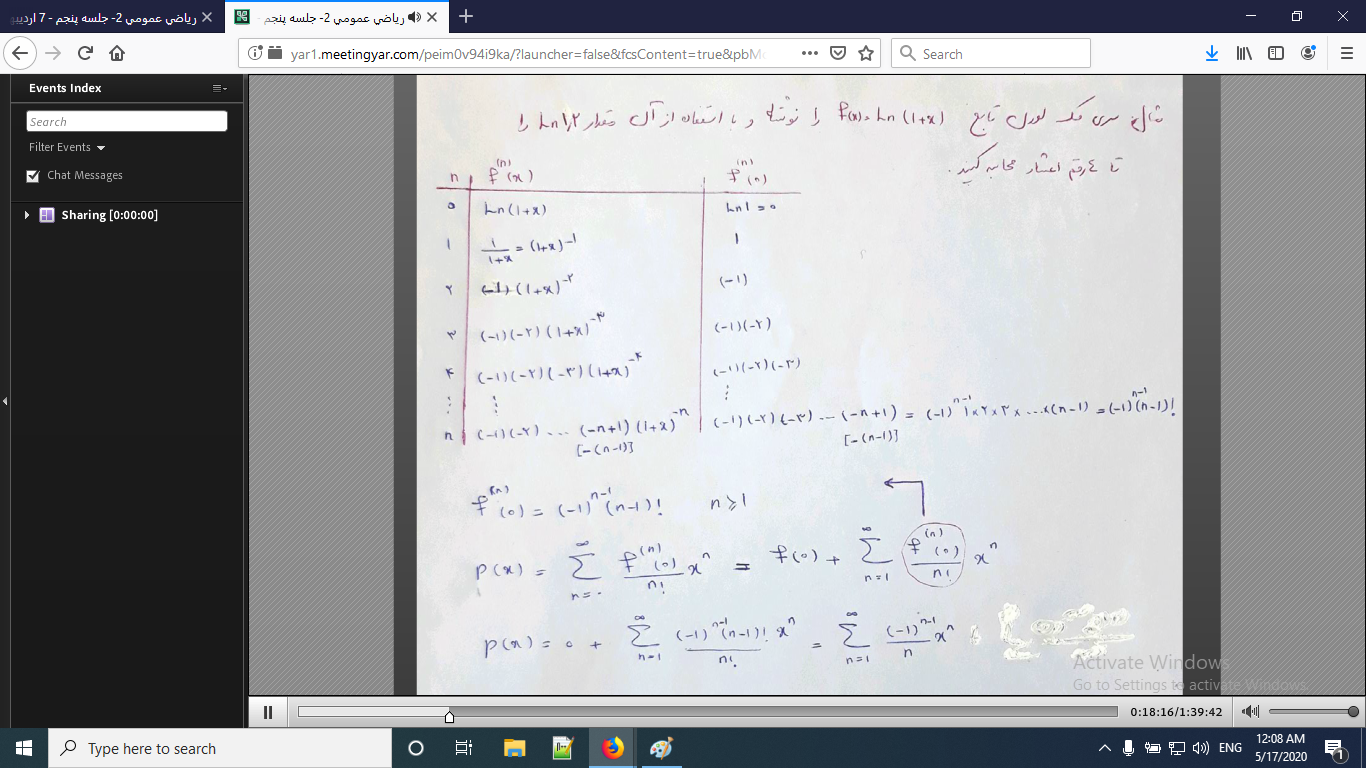 رياضي عمومي 2- جلسه پنجم - 7 ارديبه
رياضي عمومي 2- جلسه پنجم -
yar1.meetingyar.com/peim0v94i9ka/?launcher=false&fcsContent=true&pbMo
Search
Events Index
Search
Filter Events
Chat Messages
Sharing [0:00:00]
مثال: سری مک لورن تابع f(x)=Ln(1+x) را نوشته و با استفاده از آن مقدار Ln۱٫۲ را
تا ٤ رقم اعشار محاسبه کنید.
n f⁽ⁿ⁾(x) f⁽ⁿ⁾(0)
۰ Ln(1+x) Ln1 = 0
۱ 1/(1+x) = (1+x)⁻¹ 1
۲ (-1)(1+x)⁻² (-1)
۳ (-1)(-۲)(1+x)⁻³ (-1)(-۲)
۴ (-1)(-۲)(-۳)(1+x)⁻⁴ (-1)(-۲)(-۳)
⋮ ⋮ ⋮
n (-1)(-۲) ... (-n+1)(1+x)⁻ⁿ (-1)(-۲)(-۳) ... (-n+1) = (-1)ⁿ⁻¹ 1×۲×۳× ...×(n-1) = (-1)ⁿ⁻¹(n-1)!
[-(n-1)] [-(n-1)]
f⁽ⁿ⁾(0) = (-1)ⁿ⁻¹(n-1)! n⩾1
p(x) = ∑_{n=0}^{∞} f⁽ⁿ⁾(0)/n! xⁿ = f(0) + ∑_{n=1}^{∞} f⁽ⁿ⁾(0)/n! xⁿ
p(x) = 0 + ∑_{n=1}^{∞} (-1)ⁿ⁻¹(n-1)!/n! xⁿ = ∑_{n=1}^{∞} (-1)ⁿ⁻¹/n xⁿ
Activate Windows
Go to Settings to activate Windows.
0:18:16/1:39:42
Type here to search
ENG
12:08 AM
5/17/2020
1